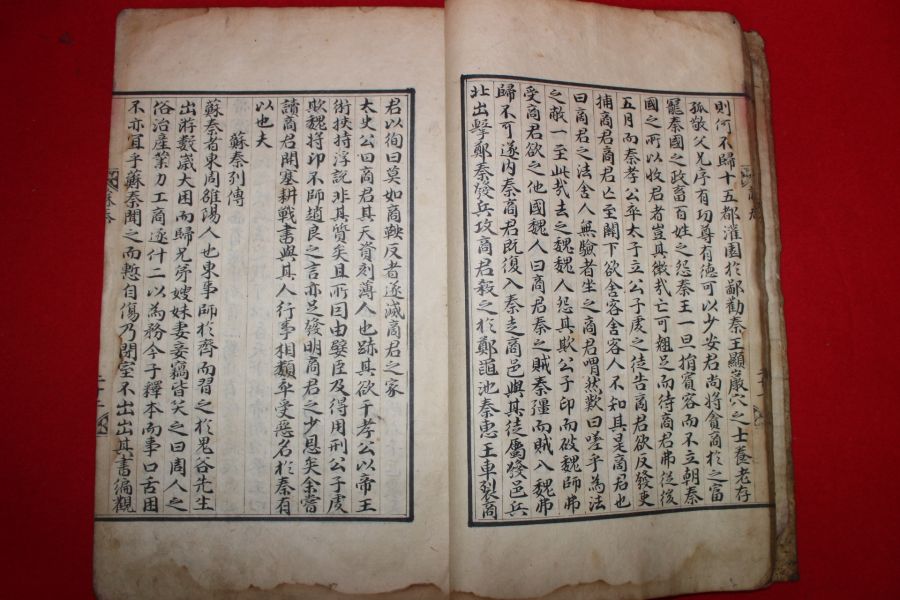 則何不歸十五都灌園於鄙勸秦王顯巖穴之士養老存
孤敬父兄序有功尊有德可以少安君尚將貪商於之富
寵秦國之政畜百姓之怨秦王一旦捐賓客而不立朝秦
國之所以收君者豈其微哉亡可翹足而待商君弗從後
五月而秦孝公卒太子立公子虔之徒告商君欲反發吏
捕商君商君亡至關下欲舍客舍客人不知其是商君也
曰商君之法舍人無驗者坐之商君喟然歎曰嗟乎為法
之敝一至此哉去之魏魏人怨其欺公子卬而破魏師弗
受商君欲之他國魏人曰商君秦之賊秦彊而賊入魏弗
歸不可遂內秦商君既復入秦走商邑與其徒屬發邑兵
北出擊鄭秦發兵攻商君殺之於鄭黽池秦惠王車裂商
君以徇曰莫如商鞅反者遂滅商君之家
太史公曰商君其天資刻薄人也跡其欲干孝公以帝王
術挾持浮說非其質矣且所因由嬖臣及得用刑公子虔
欺魏將卬不師趙良之言亦足發明商君之少恩矣余嘗
讀商君開塞耕戰書與其人行事相類卒受惡名於秦有
以也夫
蘇秦列傳
蘇秦者東周雒陽人也東事師於齊而習之於鬼谷先生
出游數歲大困而歸兄弟嫂妹妻妾竊皆笑之曰周人之
俗治產業力工商逐什二以為務今子釋本而事口舌困
不亦宜乎蘇秦聞之而慙自傷乃閉室不出出其書徧觀